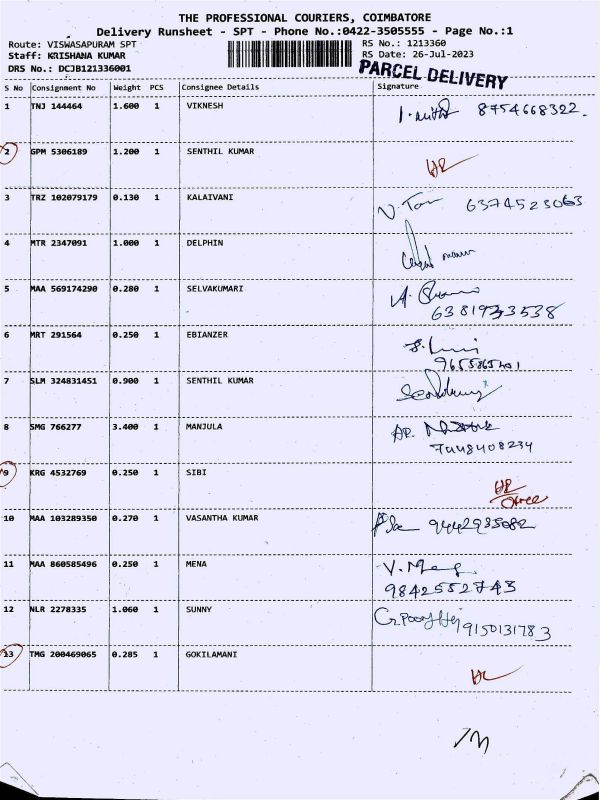 THE PROFESSIONAL COURIERS, COIMBATORE
Delivery Runsheet - SPT - Phone No.:0422-3505555 - Page No.:1
Route: VISWASAPURAM SPT RS No.: 1213360
Staff: KRISHANA KUMAR RS Date: 26-Jul-2023
DRS No.: DCJB121336001 PARCEL DELIVERY
S No Consignment No Weight PCS Consignee Details Signature
1 TNJ 144464 1.600 1 VIKNESH 8754668322
2 GPM 5306189 1.200 1 SENTHIL KUMAR
3 TRZ 102079179 0.130 1 KALAIVANI 6374523063
4 MTR 2347091 1.000 1 DELPHIN
5 MAA 569174290 0.280 1 SELVAKUMARI
6 MRT 291564 0.250 1 EBIANZER
7 SLM 324831451 0.900 1 SENTHIL KUMAR
8 SMG 766277 3.400 1 MANJULA
7448408234
9 KRG 4532769 0.250 1 SIBI
10 MAA 103289350 0.270 1 VASANTHA KUMAR 9442935082
11 MAA 860585496 0.250 1 MENA
9842552743
12 NLR 2278335 1.060 1 SUNNY
9150131783
13 TMG 200469065 0.285 1 GOKILAMANI